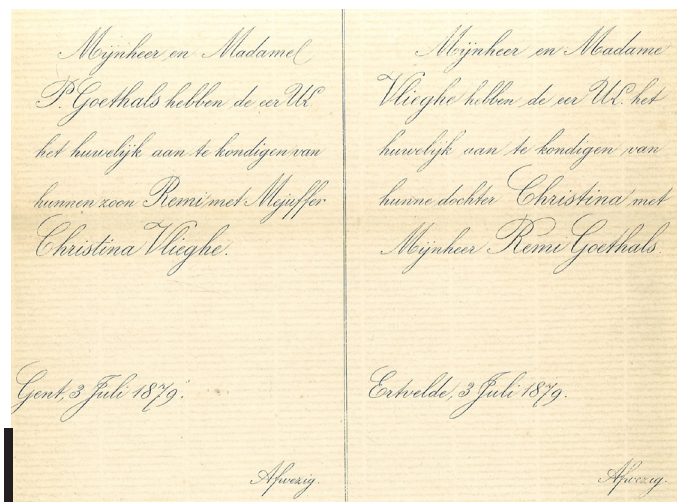 Mijnheer en Madame
P. Goethals hebben de eer UL.
het huwelijk aan te kondigen van
hunnen zoon Remi met Mejuffer
Christina Vlieghe.
Gent, 3 Juli 1879.
Afwezig.
Mijnheer en Madame
Vlieghe hebben de eer UL. het
huwelijk aan te kondigen van
hunne dochter Christina met
Mijnheer Remi Goethals.
Ertvelde, 3 Juli 1879.
Afwezig.